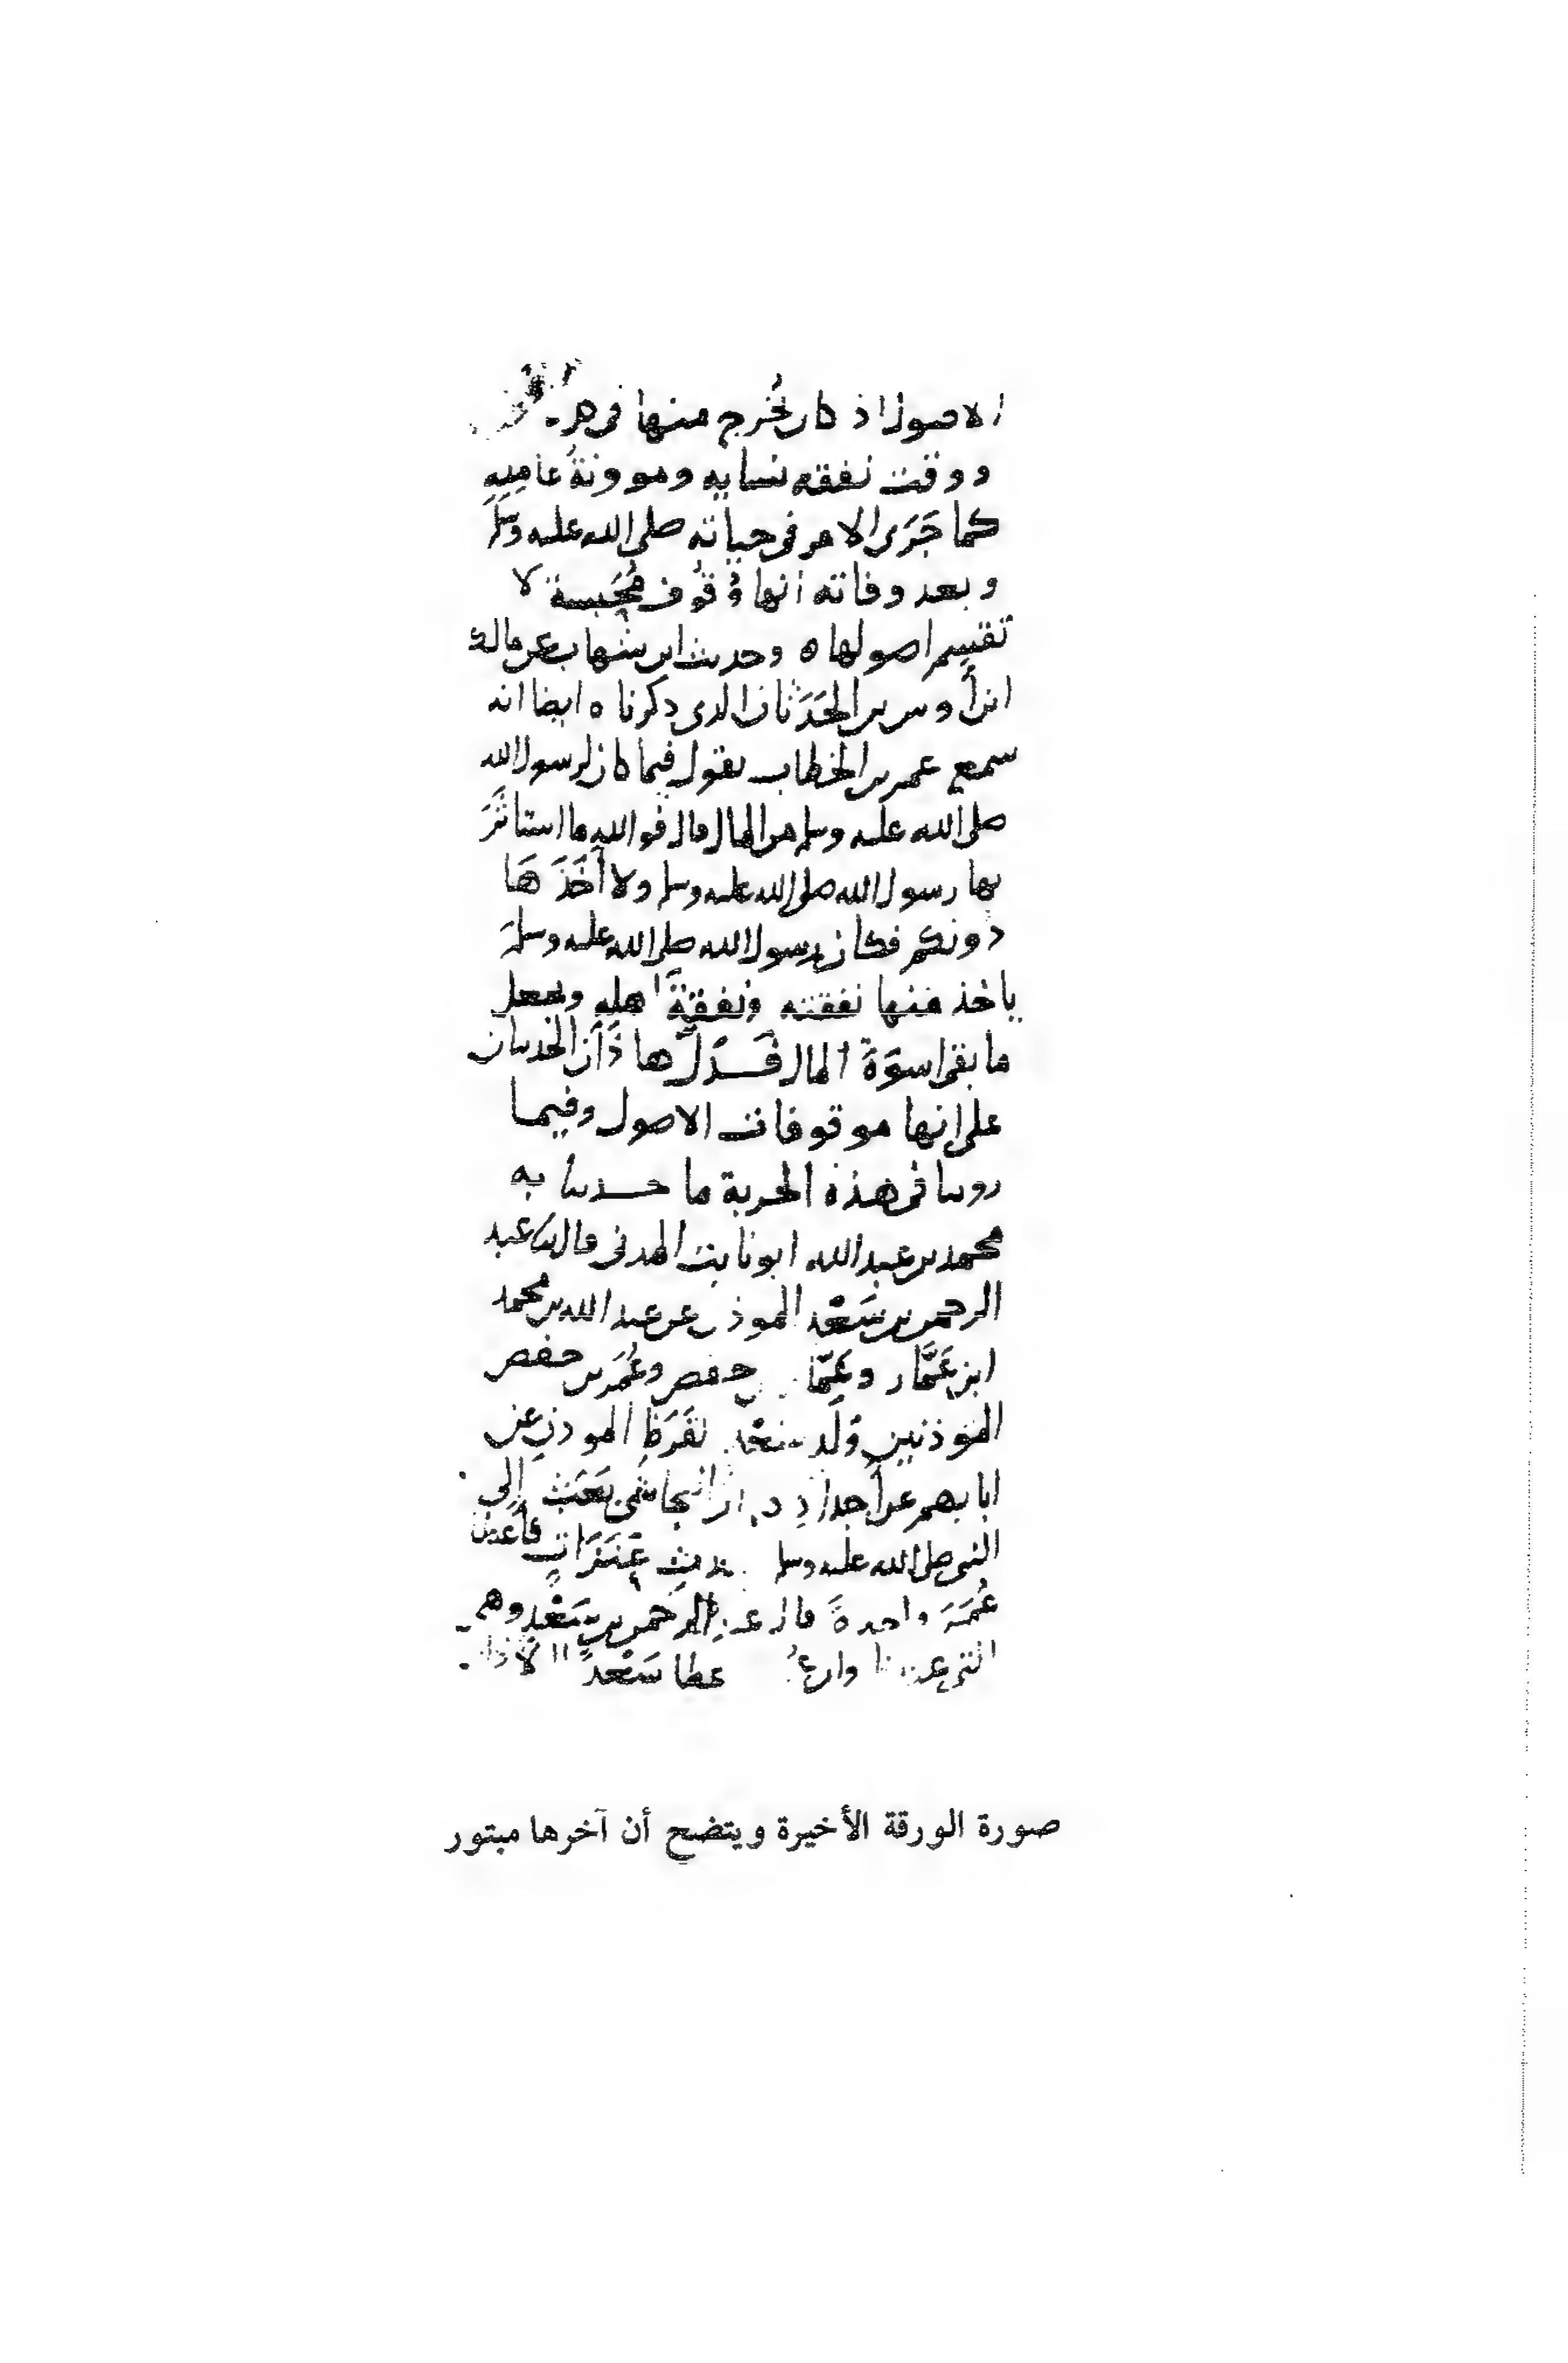 الاصول اذ كان يُخرج منها في
ووقت نفقه نسايه وموونةُ عامِلِهِ
كما جَرَى الامر في حياته صلى الله عليه وسلم
وبعد وفاته انها وُقُوف مُحَبسة لا
تقسم اصولها ه وحديث ابن شهاب عن مالك
ابن أوس بن الحَدَثان الذي ذكرناه ايضا انه
سمع عمر بن الخطاب يقول فيما كان لرسول الله
صلى الله عليه وسلم من المال قال فوالله ما استاثَرَ
بها رسول الله صلى الله عليه وسلم ولا أَخَذَهَا
دونكم فكان رسول الله صلى الله عليه وسلمَ
ياخذ منها نفقته ونفقةَ اهله ويجعل
ما بقى اسوَةَ المال فَدَلَّ هاذَان الحديثان
على انها موقوفات الاصول وفيما
روينا في هذه الحربة ما حدثنا به
محمد بن عبد الله ابو ثابت المدني قال ثنا عبد
الرحمن بن سَعْد الموذن عن عبد الله بن محمد
ابن عَمَّار وعَمّار بن حفص وعُمَر بن حفص
المؤذنين وَلَد سَعْد القَرَظ الموذن عن
ابايهم عن أجدادهم ان النجاشي بَعَثَ إلى
النبي صلى الله عليه وسلم بثلاث عَنَزَاتٍ فأعطى
عُمَرَ واحدةً قال عبد الرحمن بن سَعْدٍ وهي
التي عندنا عطا سَعْدًا
صورة الورقة الأخيرة ويتضح أن آخرها مبتور